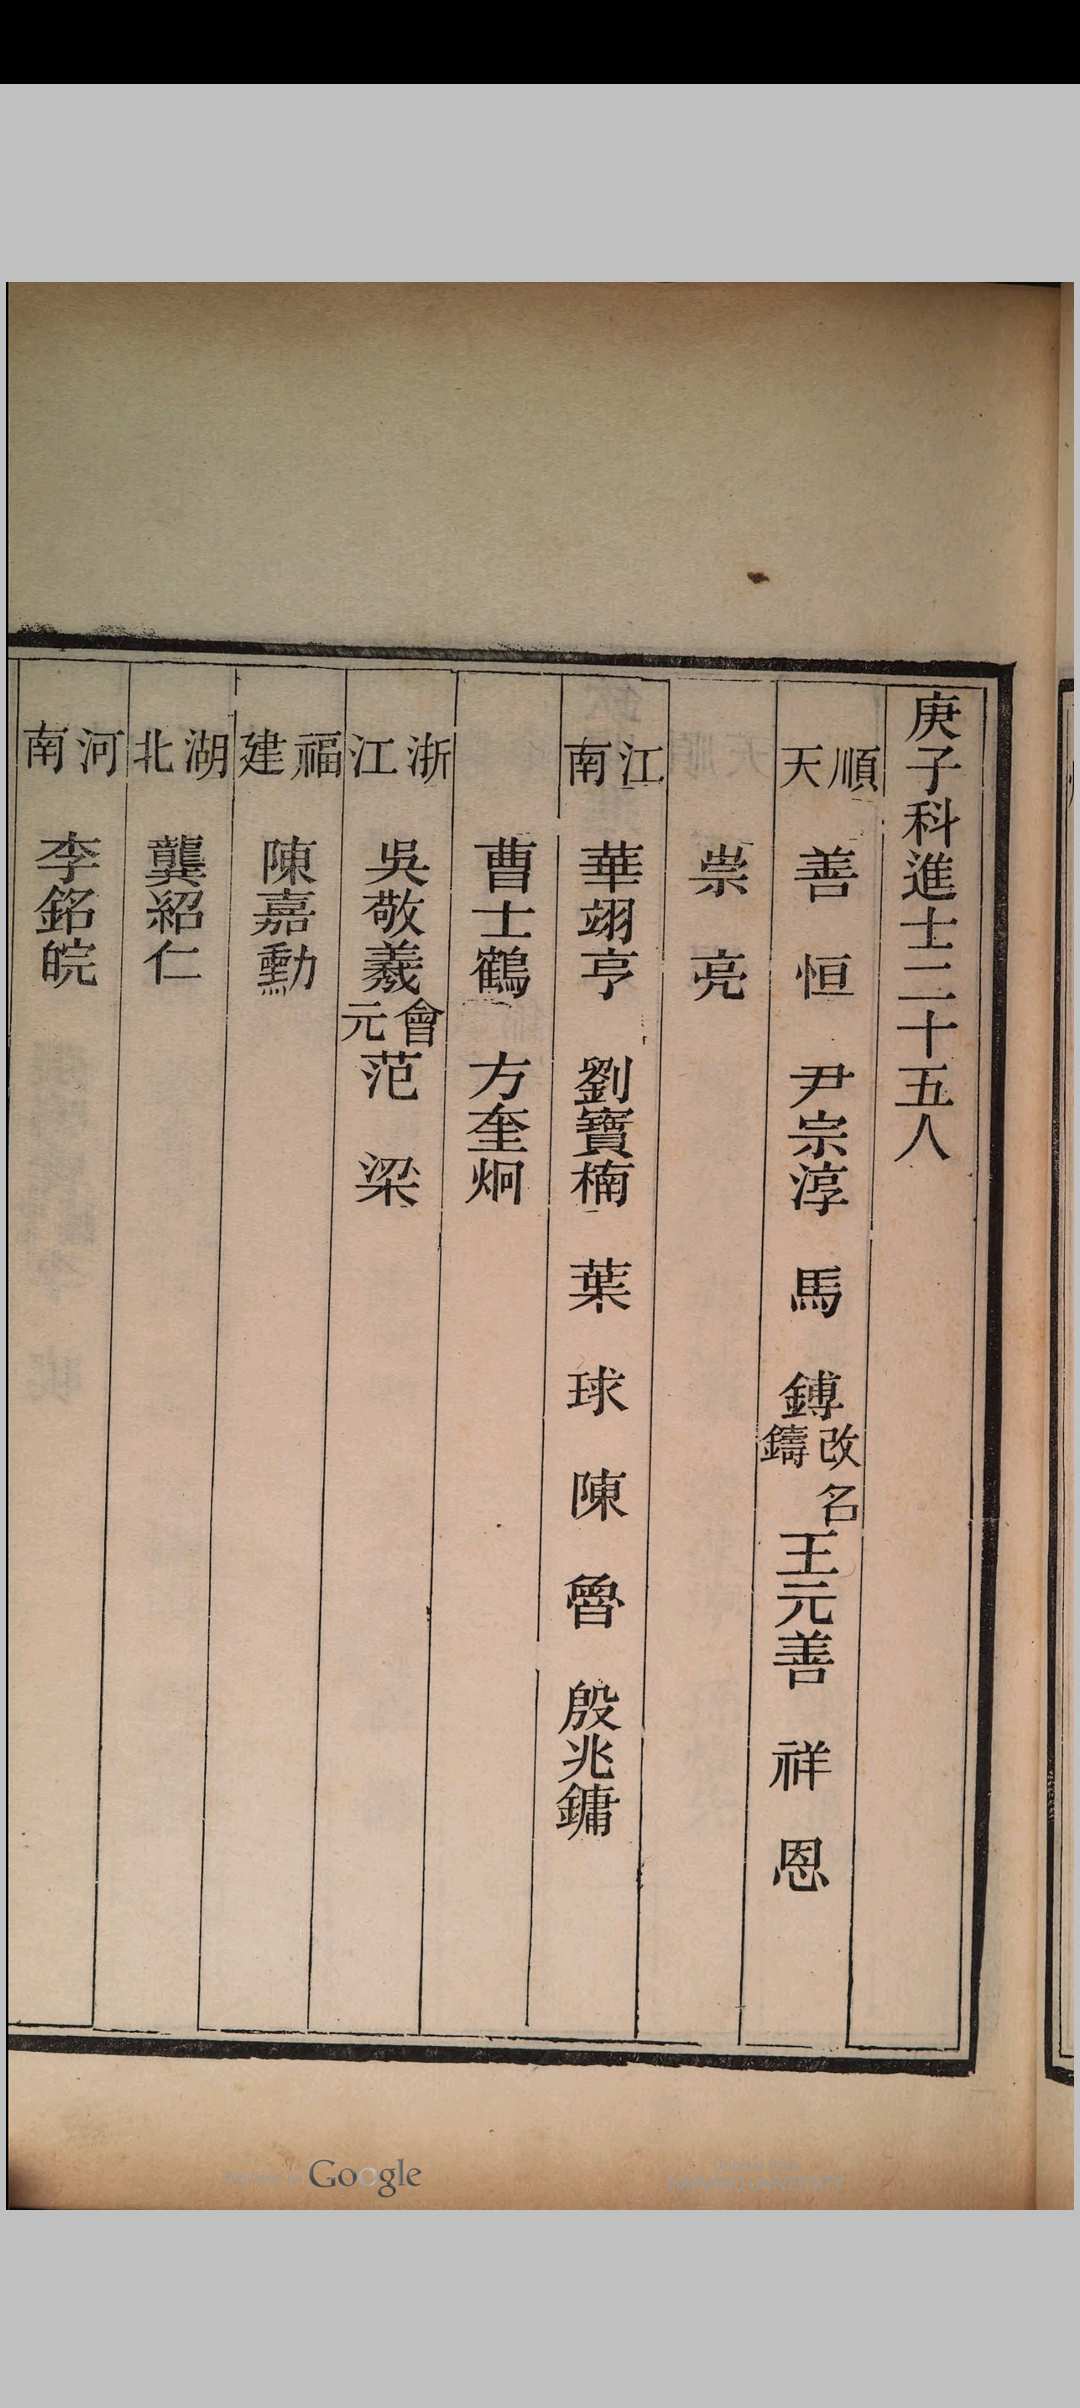 庚子科進士二十五人
順天 善恒 尹宗淳 馬鎛改名鑄 王元善 祥恩
崇亮
江南 華翊亨 劉寶楠 葉球 陳魯 殷兆鏞
曹士鶴 方奎炯
浙江 吳敬羲會元 范梁
福建 陳嘉勳
湖北 龔紹仁
河南 李銘皖
Google